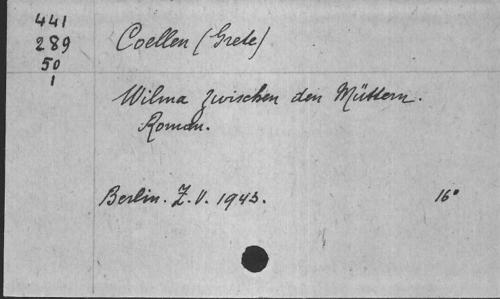 441
289
50
1
Coellen (Grete)
Wilma zwischen den Müttern.
Roman.
Berlin. Z.V. 1943.
16°